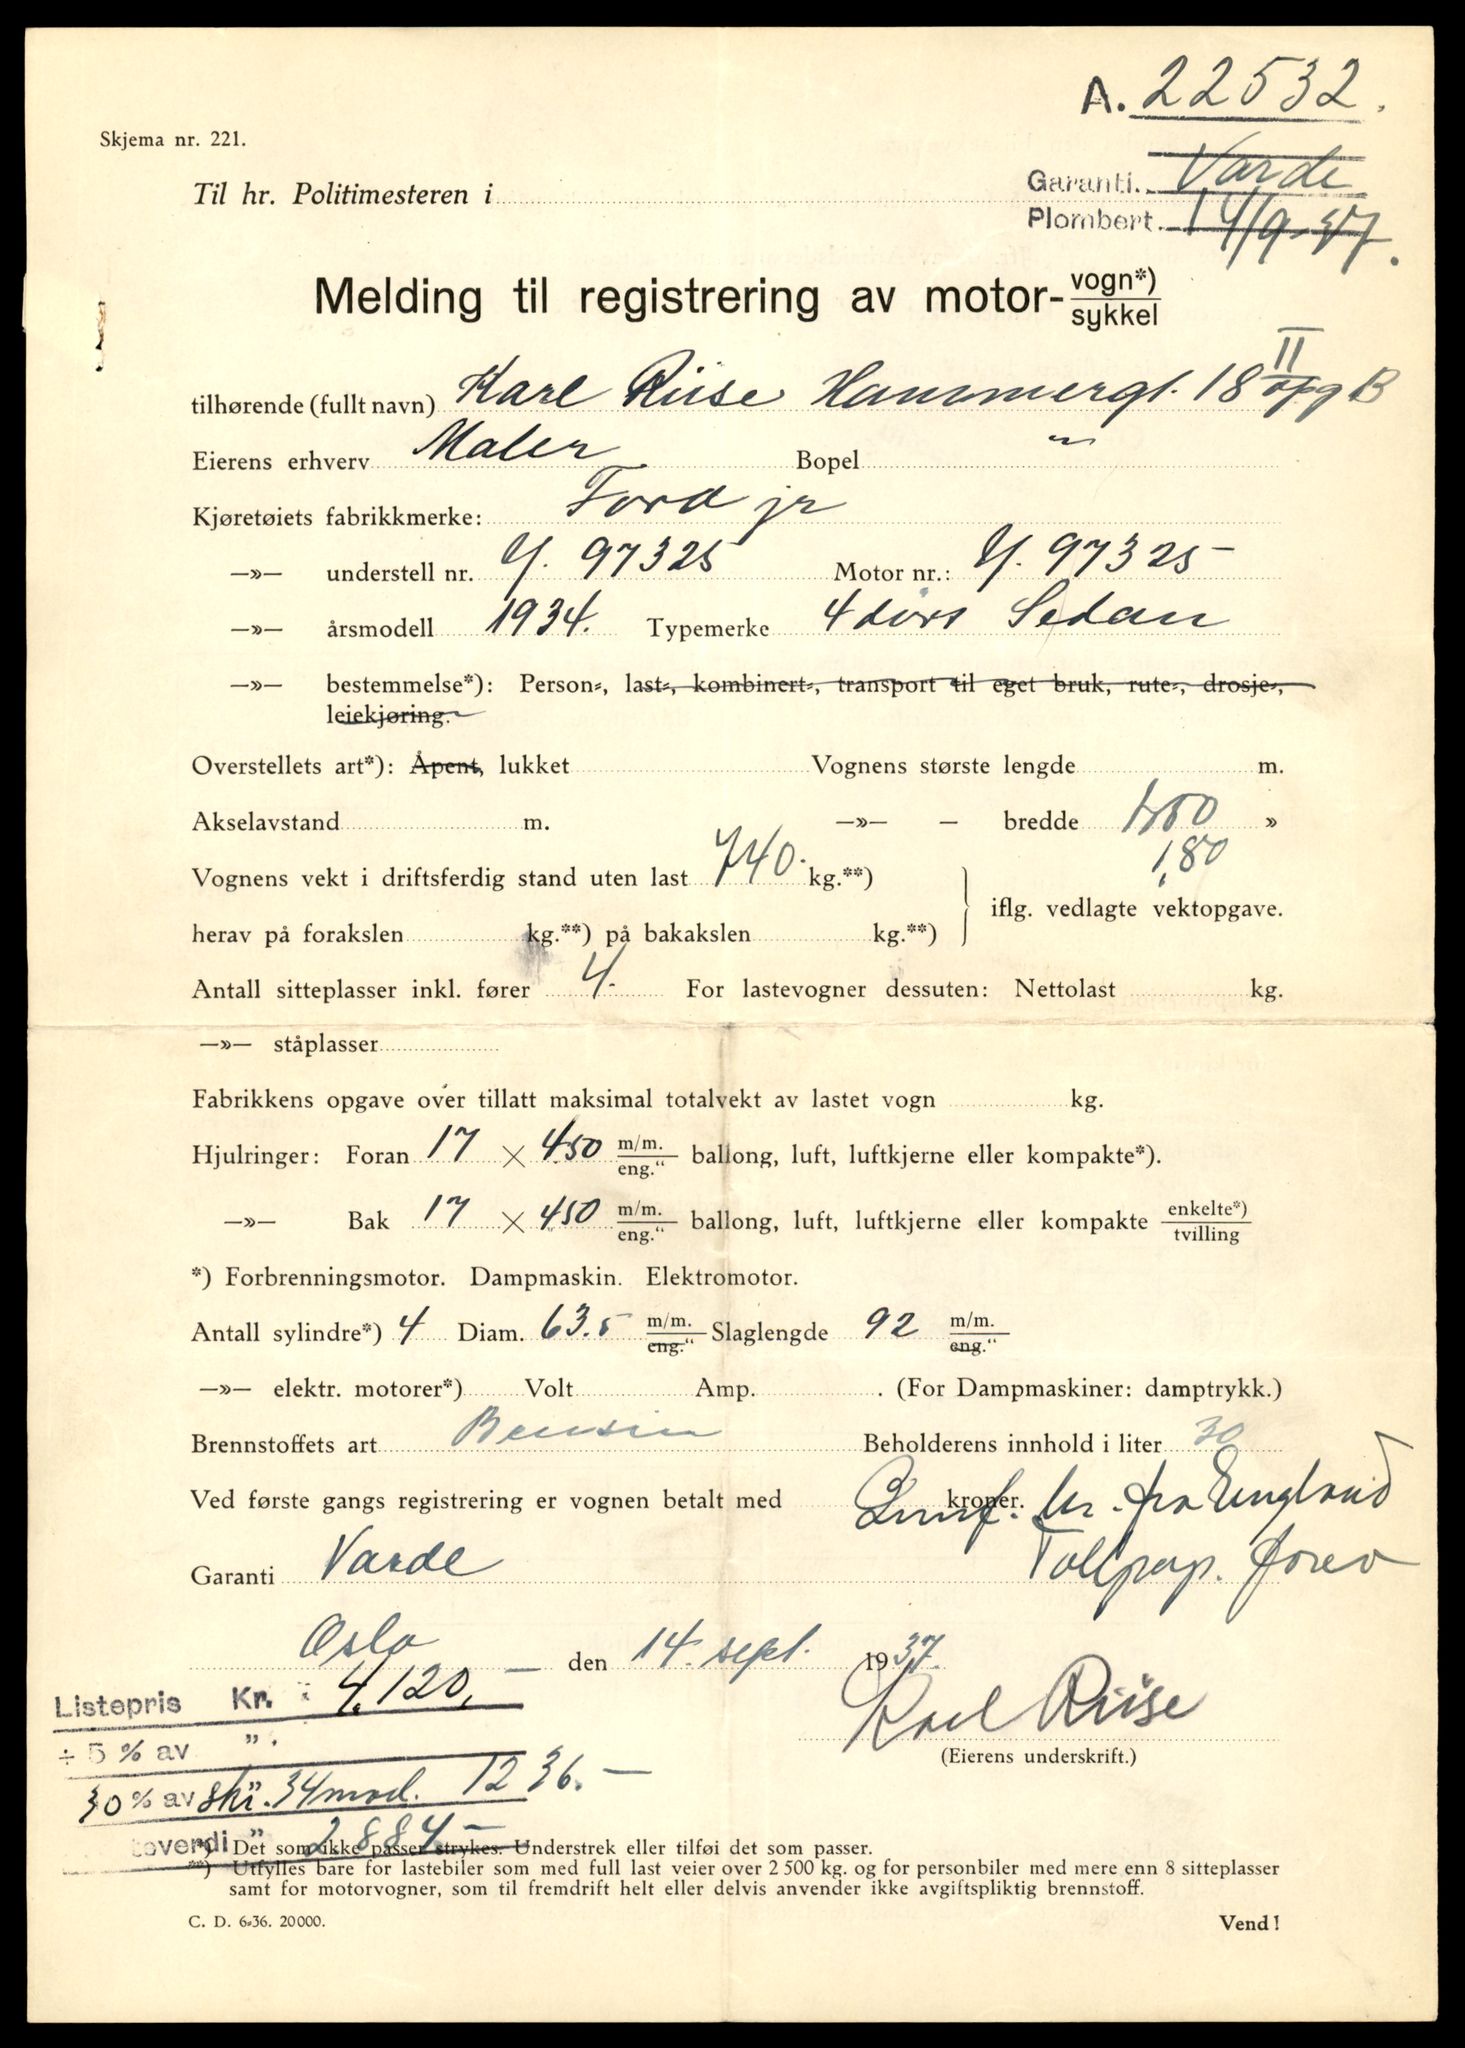 A. 22532.
Skjema nr. 221.
Garanti. Varde
Til hr. Politimesteren i
Plombert. 14/9-37.
Melding til registrering av motor- vogn*) / sykkel
tilhørende (fullt navn) Karl Riise Hammergt. 18 II opg B
Eierens erhverv Maler Bopel "
Kjøretøiets fabrikkmerke: Ford jr
—»— understell nr. Y. 97325 Motor nr.: Y. 97325
—»— årsmodell 1934. Typemerke 4 dørs Sedan
—»— bestemmelse*): Person-, last-, kombinert-, transport til eget bruk, rute-, drosje-,
leiekjøring.
Overstellets art*): Åpent, lukket Vognens største lengde m.
Akselavstand m. —»— — bredde »
1,80
Vognens vekt i driftsferdig stand uten last 740. kg.**)
iflg. vedlagte vektopgave.
herav på forakslen kg.**) på bakakslen kg.**)
Antall sitteplasser inkl. fører 4. For lastevogner dessuten: Nettolast kg.
—»— ståplasser
Fabrikkens opgave over tillatt maksimal totalvekt av lastet vogn kg.
Hjulringer: Foran 17 × 450 m/m. / eng.“ ballong, luft, luftkjerne eller kompakte*).
—»— Bak 17 × 450 m/m. / eng.“ ballong, luft, luftkjerne eller kompakte enkelte*) / tvilling
*) Forbrenningsmotor. Dampmaskin. Elektromotor.
Antall sylindre*) 4 Diam. 63.5 m/m. / eng.“ Slaglengde 92 m/m. / eng.“
—»— elektr. motorer*) Volt Amp. . (For Dampmaskiner: damptrykk.)
Brennstoffets art Bensin Beholderens innhold i liter 30
Ved første gangs registrering er vognen betalt med kroner. fra England
Garanti Varde Tollpap.
Oslo den 14. sept. 1937.
Listepris Kr. 4.120,—
÷ 5 % av ".
Karl Riise
(Eierens underskrift.)
30 % av " 34 mod. 1236.—
toverdi " 2884.—
*) Det som ikke passer strykes. Understrek eller tilføi det som passer.
**) Utfylles bare for lastebiler som med full last veier over 2 500 kg. og for personbiler med mere enn 8 sitteplasser
samt for motorvogner, som til fremdrift helt eller delvis anvender ikke avgiftspliktig brennstoff.
C. D. 6-36. 20000. Vend!